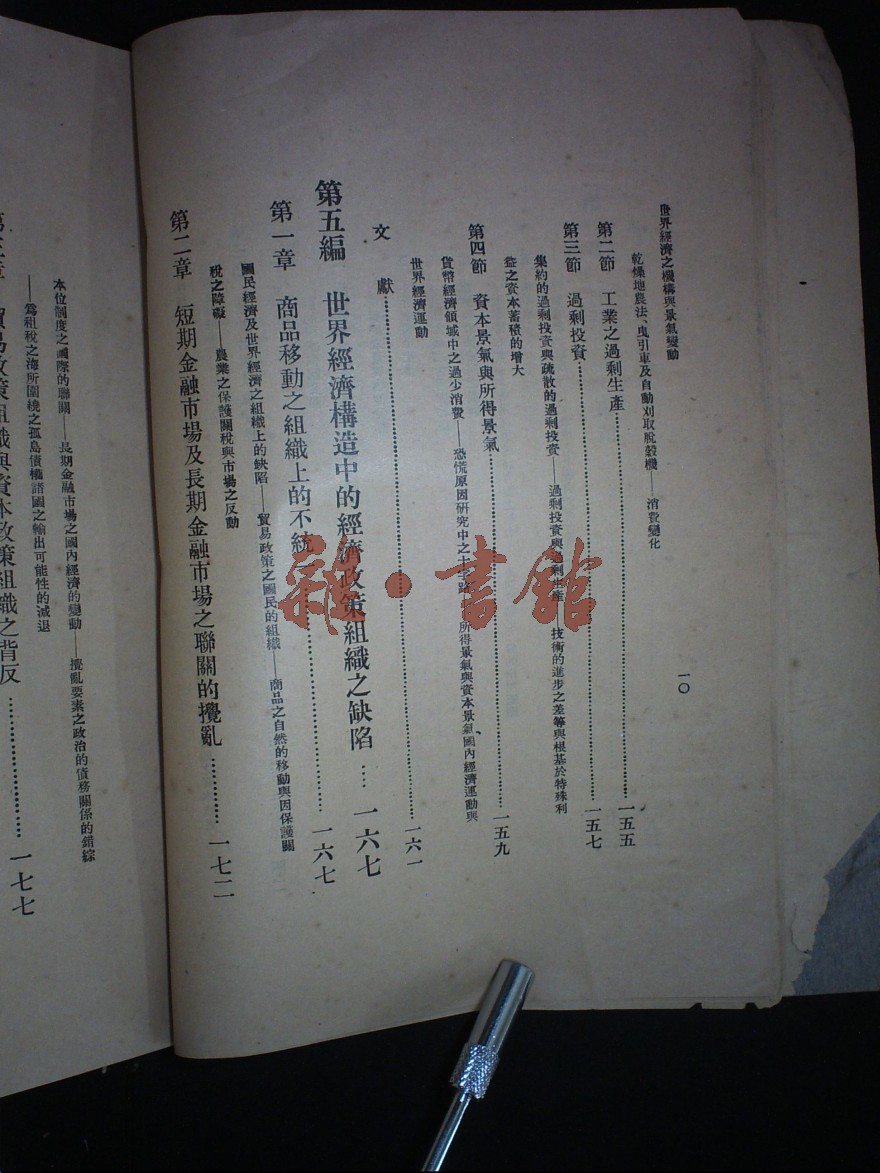 世界經濟之機構與景氣變動
一〇
乾燥地農法、曳引車及自動刈取脫穀機——消費變化
第二節 工業之過剩生產…………一五五
第三節 過剩投資…………一五七
集約的過剩投資與疏散的過剩投資——過剩投資與過剩生產——技術的進步之差等與根基於特殊利
益之資本蓄積的增大
第四節 資本景氣與所得景氣…………一五九
貨幣經濟領域中之過少消費——恐慌原因研究中之十字路——所得景氣與資本景氣國內經濟運動與
世界經濟運動
文獻…………一六一
第五編 世界經濟構造中的經濟政策組織之缺陷……一六七
第一章 商品移動之組織上的不統一…………一六七
國民經濟及世界經濟之組織上的缺陷——貿易政策之國民的組織——商品之自然的移動與因保護關
稅之障礙——農業之保護關稅與市場之反動
第二章 短期金融市場及長期金融市場之聯關的攪亂…………一七二
本位制度之國際的聯關——長期金融市場之國內經濟的變動——攪亂要素之政治的債務關係的錯綜
——為租稅之海所圍繞之孤島債權諸國之輸出可能性的減退
第三章 貿易政策組織與資本政策組織之背反…………一七七
雜·書館